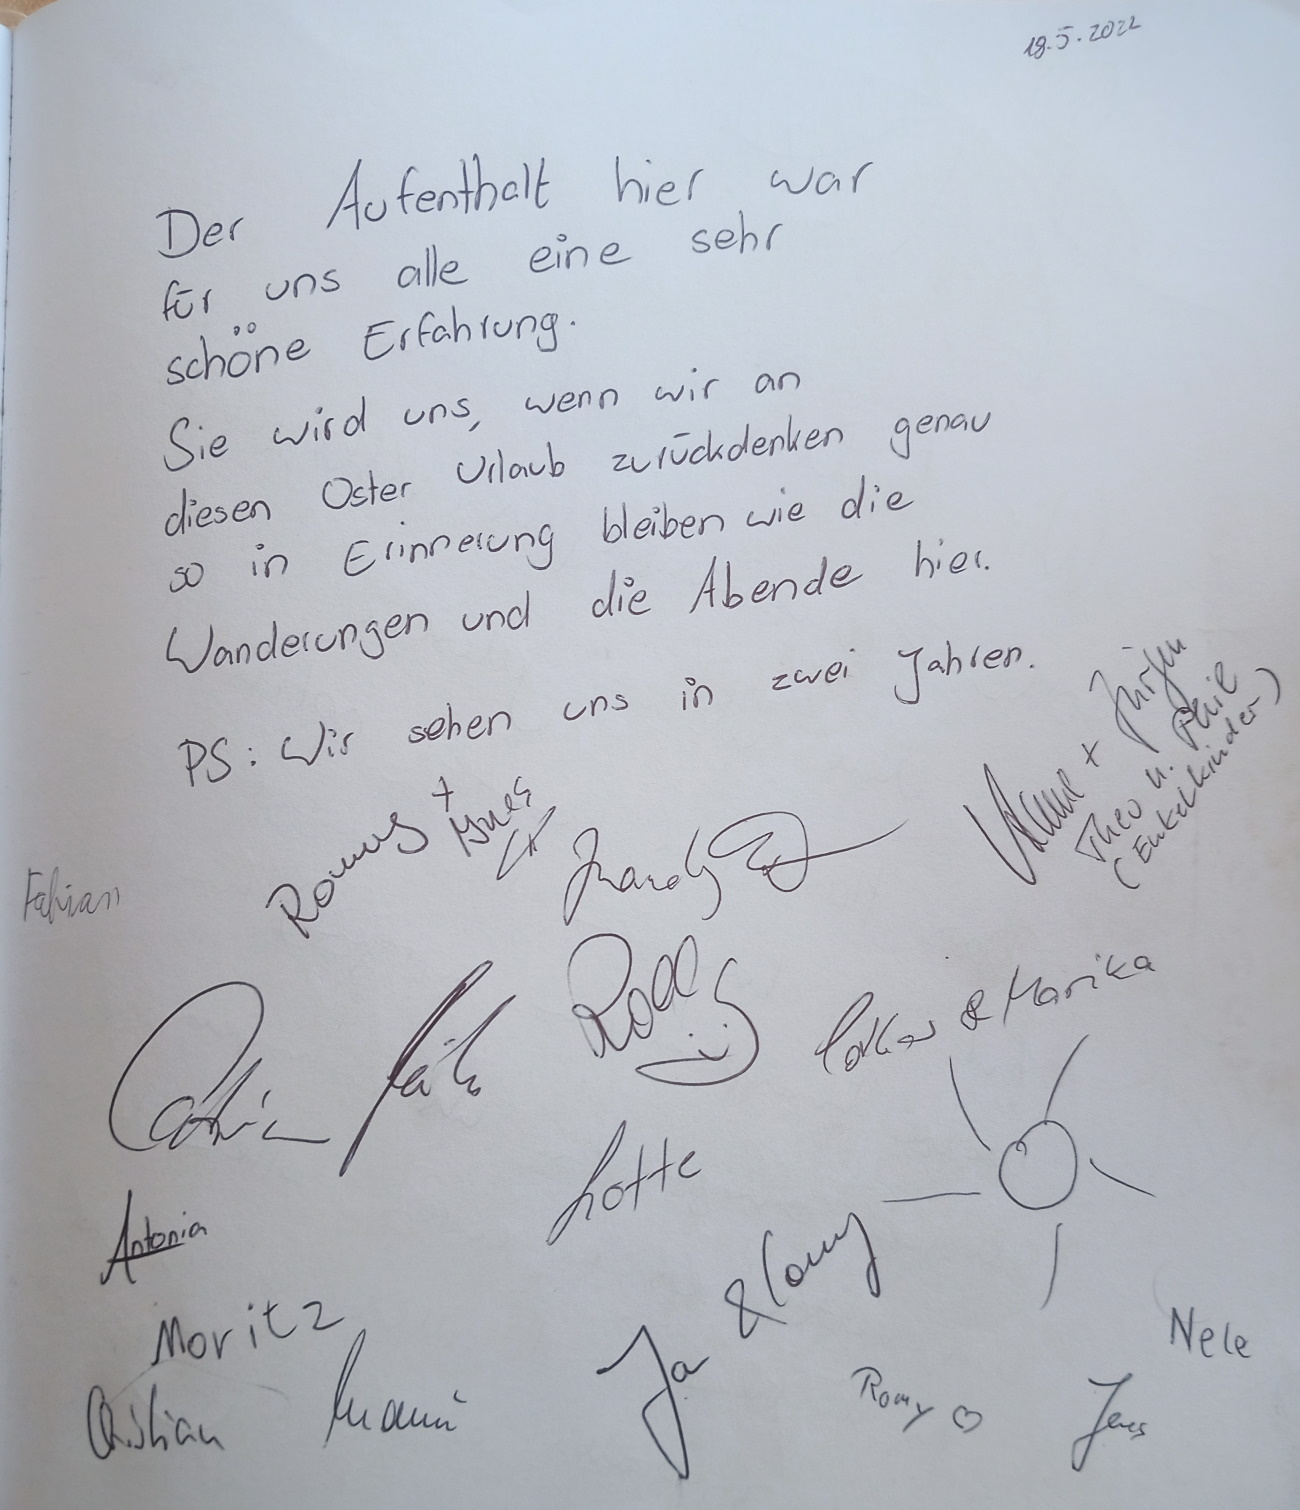 18.5.2022
Der Aufenthalt hier war
für uns alle eine sehr
schöne Erfahrung.
Sie wird uns, wenn wir an
diesen Oster Urlaub zurückdenken genau
so in Erinnerung bleiben wie die
Wanderungen und die Abende hier.
PS: Wir sehen uns in zwei Jahren.
+ Jürgen
Theo u. Phil
(Enkelkinder)
+
Fabian
& Marika
Lotte
Antonia
Moritz
Nele
Christian
Romy ♡
Jens